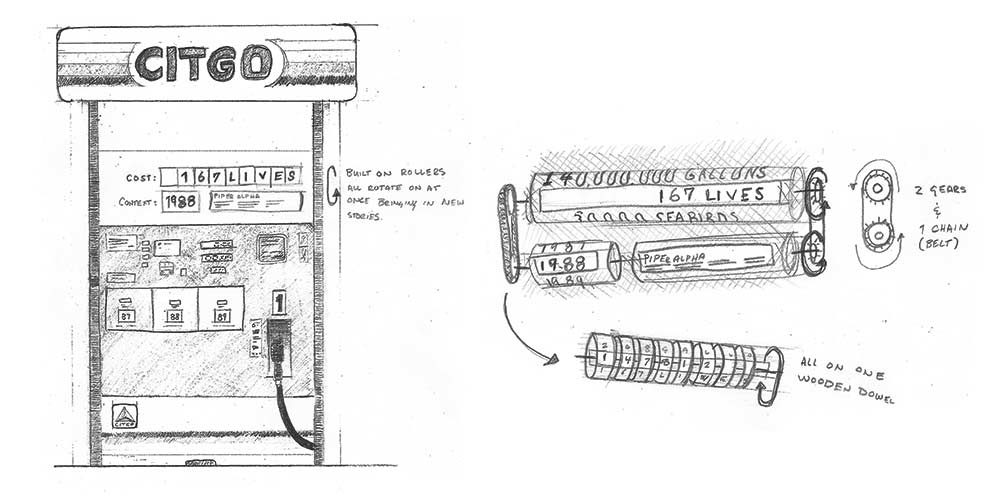 CITGO
COST: 167 LIVES
CONTEXT: 1988 PIPER ALPHA
BUILT ON ROLLERS
ALL ROTATE ON AT
ONCE BRINGING IN NEW
STORIES.
1
87 88 89
CITGO
140,000,000 GALLONS
167 LIVES
SEABIRDS
1987
1988 PIPER ALPHA
1989
2 GEARS
&
1 CHAIN
(BELT)
ALL ON ONE
WOODEN DOWEL